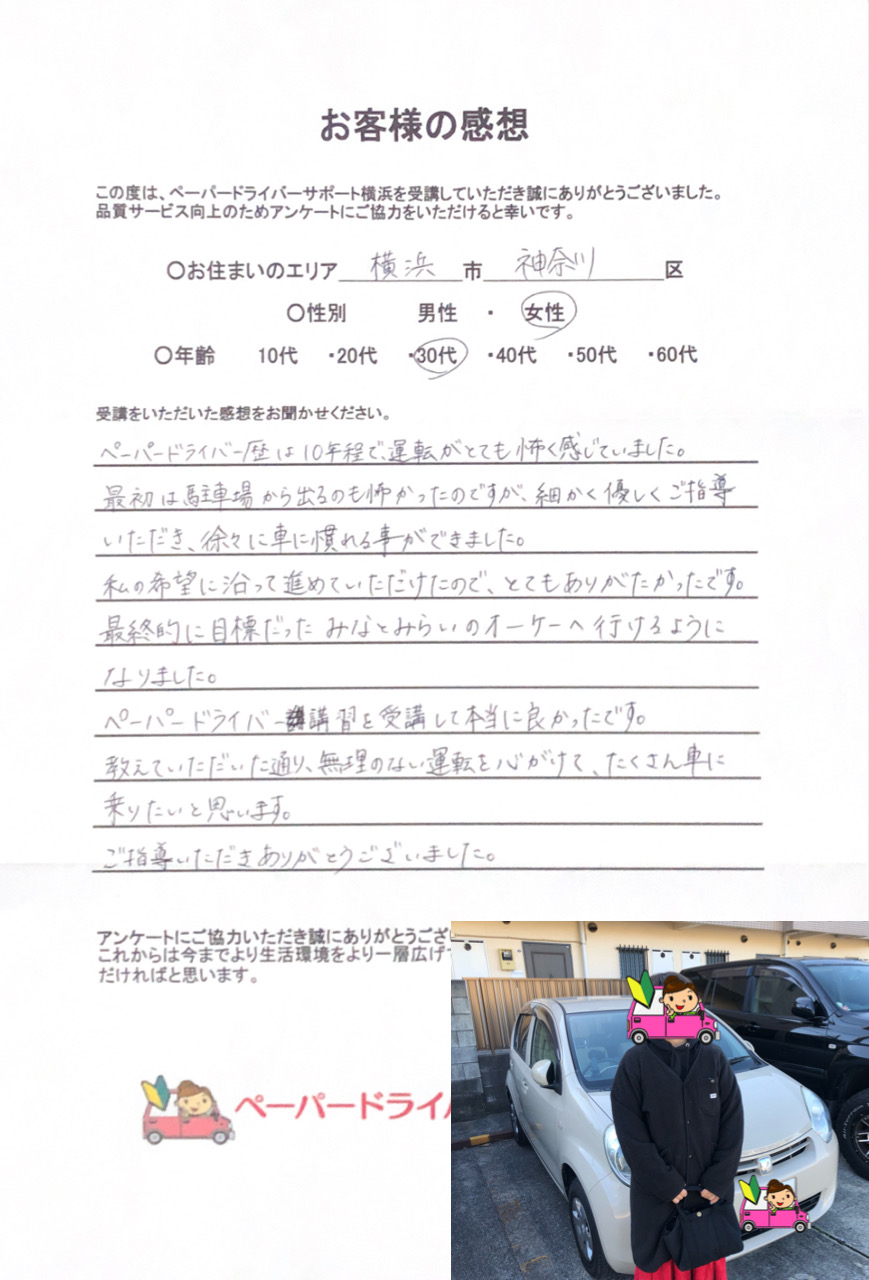 お客様の感想
この度は、ペーパードライバーサポート横浜を受講していただき誠にありがとうございました。
品質サービス向上のためアンケートにご協力をいただけると幸いです。
〇お住まいのエリア 横浜 市 神奈川 区
〇性別 男性 ・ 女性
〇年齢 10代 ・20代 ・30代 ・40代 ・50代 ・60代
受講をいただいた感想をお聞かせください。
ペーパードライバー歴は10年程で、運転がとても怖く感じていました。
最初は駐車場から出るのも怖かったのですが、細かく優しくご指導
いただき、徐々に車に慣れる事ができました。
私の希望に沿って進めていただけたので、とてもありがたかったです。
最終的に目標だったみなとみらいのオーケーへ行けるように
なりました。
ペーパードライバー講習を受講して本当に良かったです。
教えていただいた通り、無理のない運転を心がけて、たくさん車に
乗りたいと思います。
ご指導いただきありがとうございました。
アンケートにご協力いただき誠にありがとうござ
これからは今までより生活環境をより一層広げ
だければと思います。
ペーパードライ